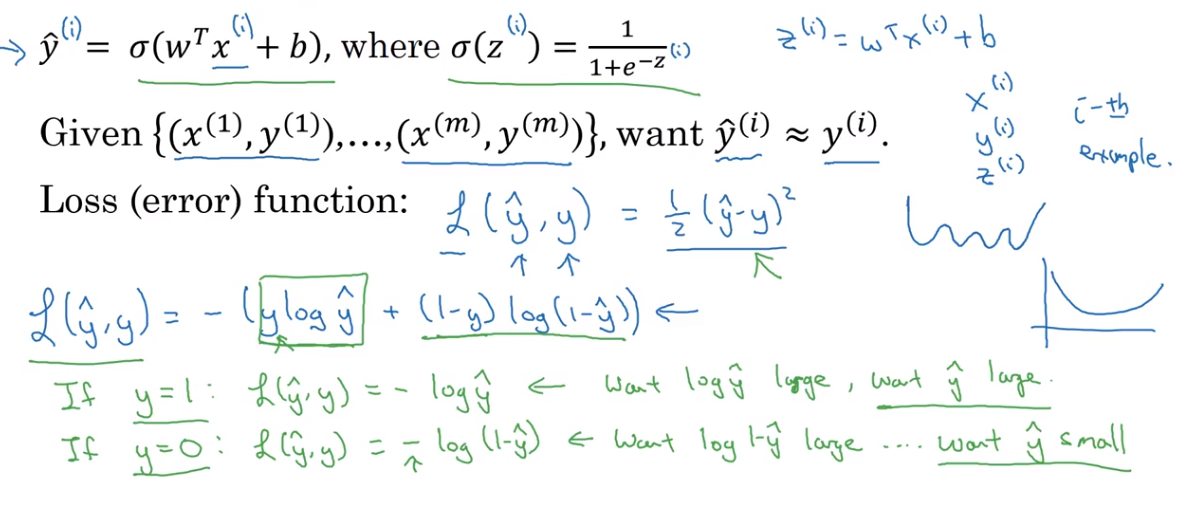 → ŷ⁽ⁱ⁾ = σ(wᵀx⁽ⁱ⁾ + b), where σ(z⁽ⁱ⁾) = 1/(1+e^−z⁽ⁱ⁾) z⁽ⁱ⁾ = wᵀx⁽ⁱ⁾ + b
Given {(x⁽¹⁾, y⁽¹⁾),…,(x⁽ᵐ⁾, y⁽ᵐ⁾)}, want ŷ⁽ⁱ⁾ ≈ y⁽ⁱ⁾.
x⁽ⁱ⁾
y⁽ⁱ⁾
z⁽ⁱ⁾
i-th
example.
Loss (error) function: ℒ(ŷ, y) = ½(ŷ-y)²
ℒ(ŷ, y) = - (y log ŷ + (1-y) log(1-ŷ)) ←
If y=1: ℒ(ŷ, y) = - log ŷ ← Want log ŷ large, want ŷ large.
If y=0: ℒ(ŷ, y) = - log (1-ŷ) ← Want log 1-ŷ large .... want ŷ small